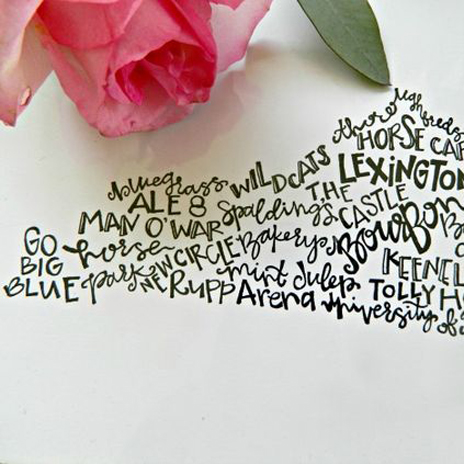 thoroughbreds
HORSE CAP
LEXINGTON
bluegrass WILDCATS
ALE 8 Spalding's THE CASTLE
MAN O' WAR Bakery Bourbon
GO BIG BLUE horse park NEW CIRCLE
KEENEL
Rupp Arena mint Julep TOLLY H
University of